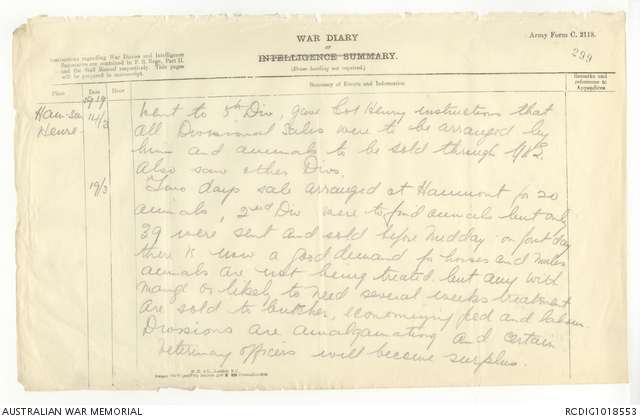 WAR DIARY
or
INTELLIGENCE SUMMARY.
(Erase heading not required.)
Army Form C. 2118.
299
Instructions regarding War Diaries and Intelligence
Summaries are contained in F. S. Regs., Part II.
and the Staff Manual respectively. Title pages
will be prepared in manuscript.
Place
Date
Hour
Summary of Events and Information
Remarks and
references to
Appendices
1919
Ham-Sur
Heure
Went to 5th Div, gave Col Henry instructions that
all Divisional Sales were to be arranged by
him and animals to be sold through
Also saw other Divs.
19/3
Two days sale arranged at Haumont for 20
animals, 2nd Div were to find animals but only
39 were sent and sold before midday on first day
there is now a good demand for horses and mules
animals are not being treated but any with
mange or likely to need several weeks treatment
are sold to butcher, economising feed and labour.
Divisions are amalgamating and certain
Veterinary officers will become surplus.
AUSTRALIAN WAR MEMORIAL
RCDIG1018553